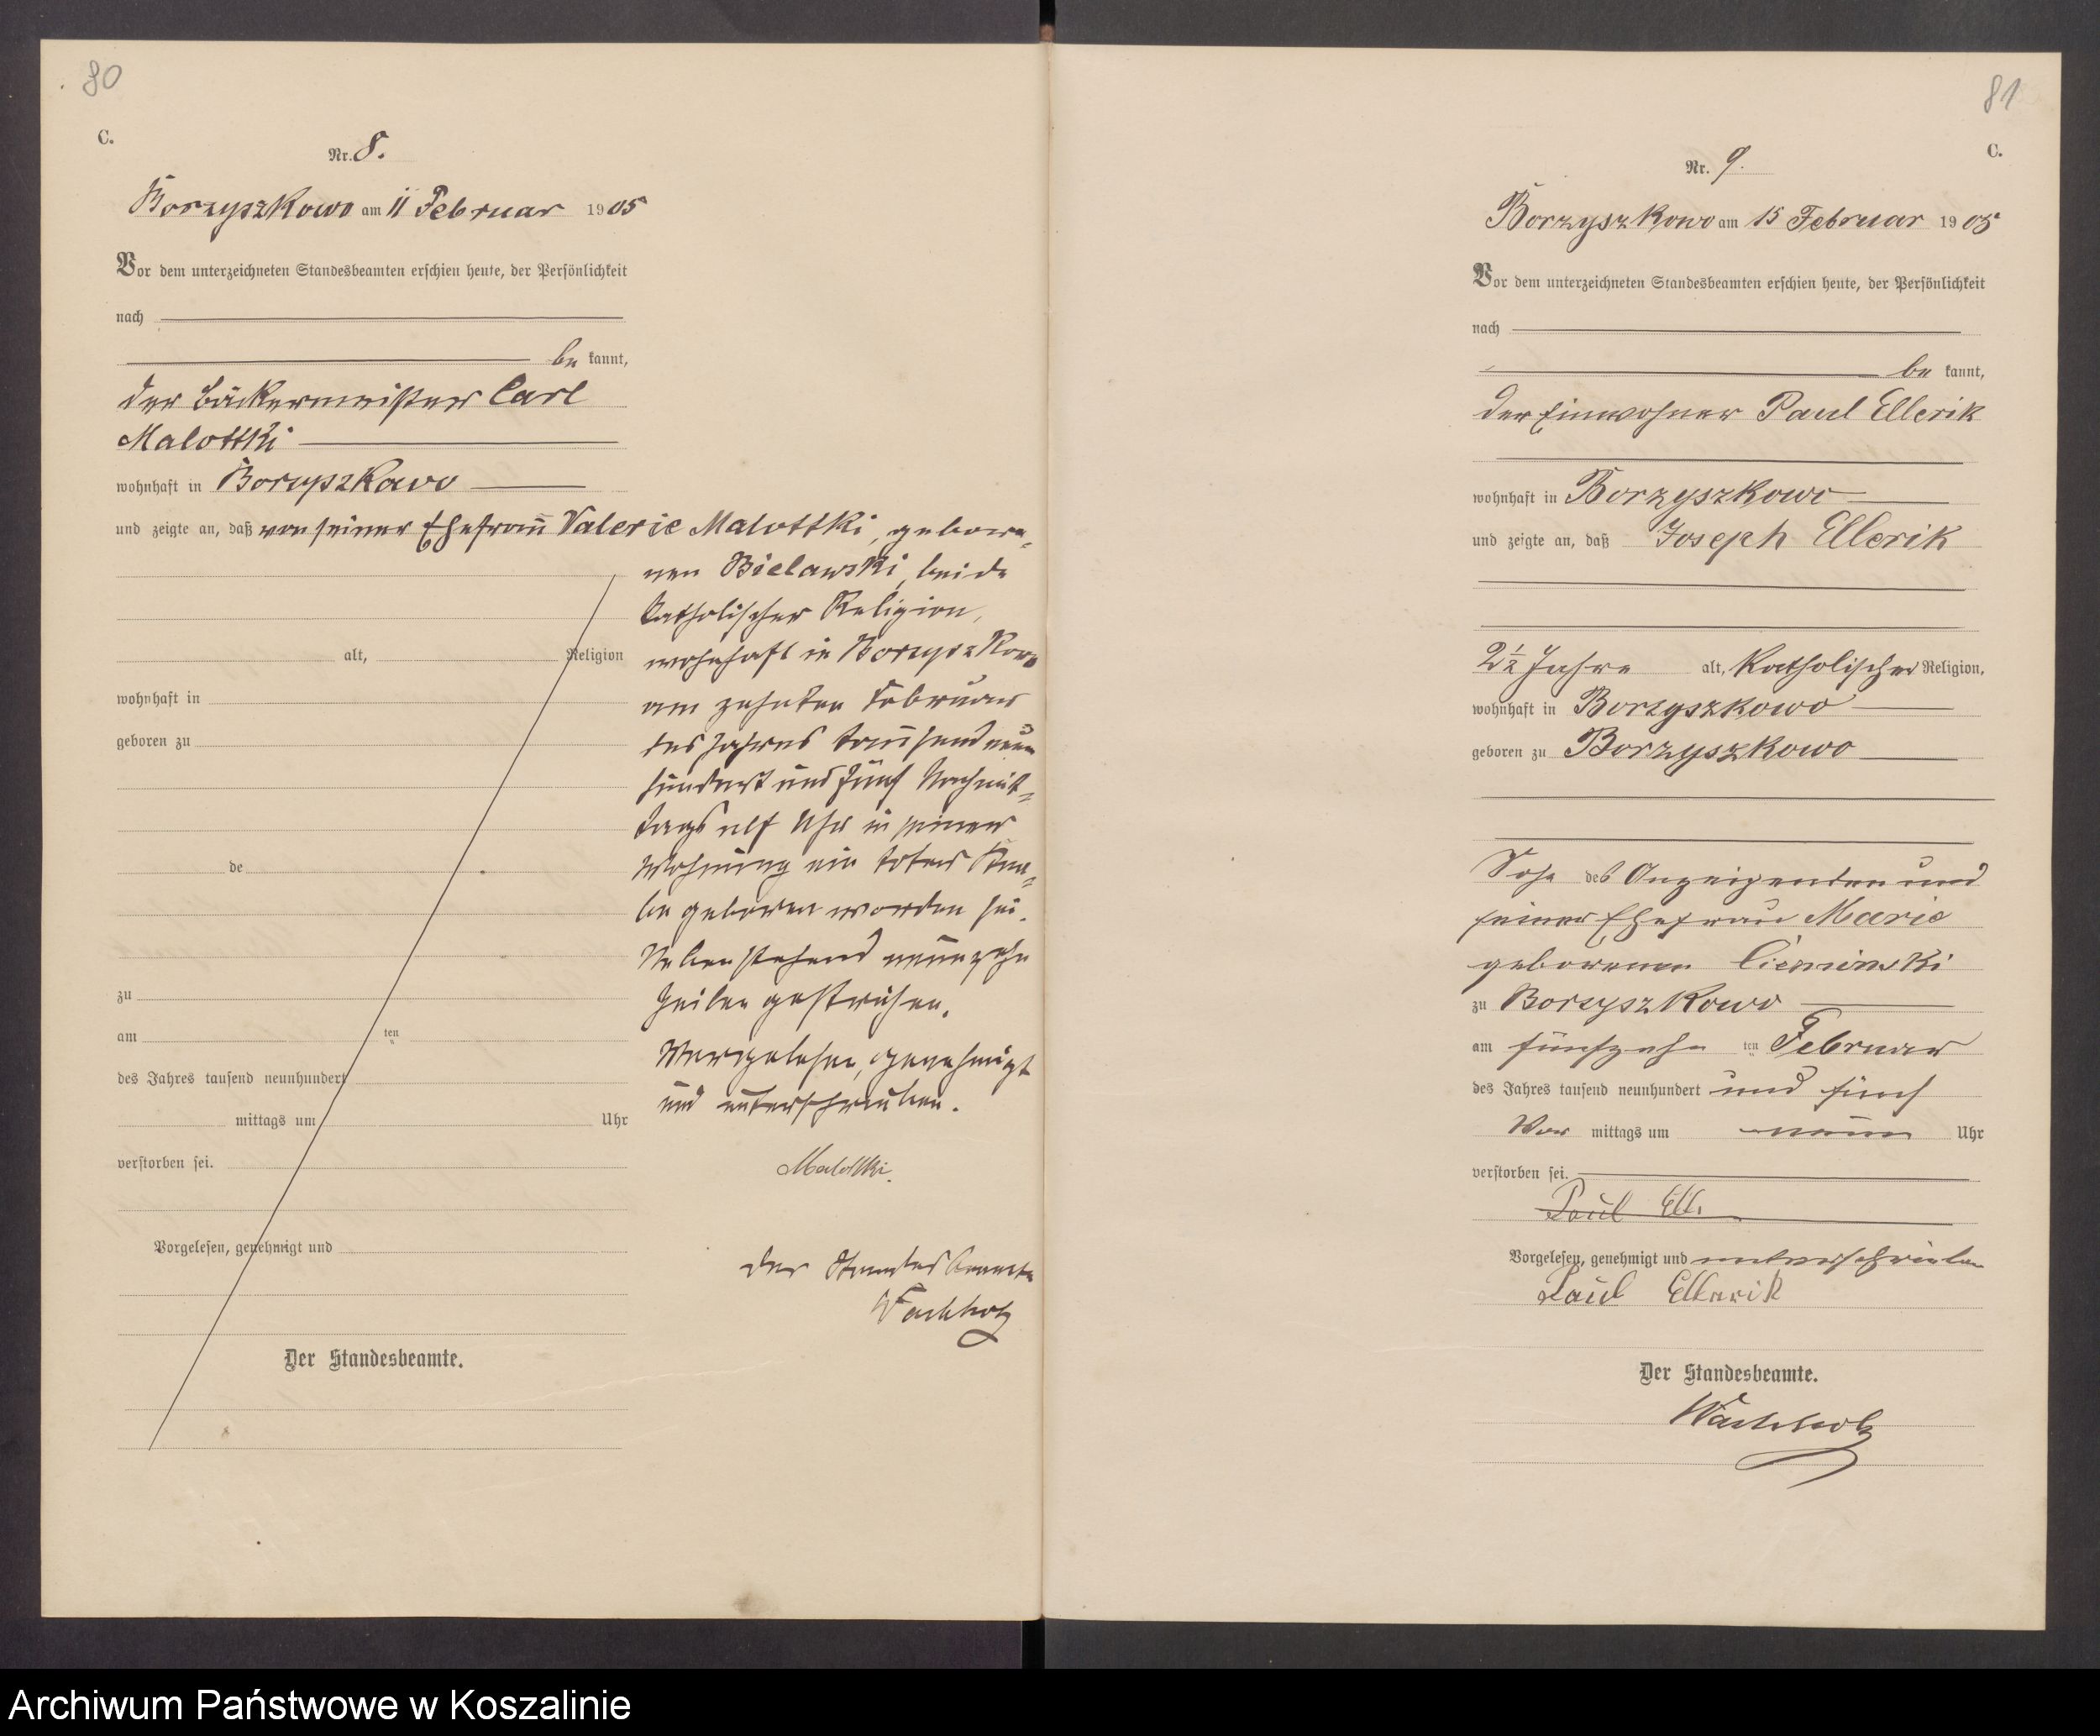 80
C.
Nr. 8.
Borzyszkowo am 11 Februar 1905
Vor dem unterzeichneten Standesbeamten erschien heute, der Persönlichkeit
nach
be kannt,
der Bäckermeister Carl
Malottki
wohnhaft in Borzyszkowo
und zeigte an, daß von seiner Ehefrau Valerie Malottki, gebore-
nen Bielawski, beide
katholischer Religion,
wohnhaft in Borzyszkowo
am zehnten Februar
des Jahres tausend neun
hundert und fünf Nachmit-
tags elf Uhr in seiner
Wohnung ein totes Kna-
be geboren worden sei.
Nebenstehend neunzehn
Zeilen gestrichen.
Vorgelesen, genehmigt
und unterschrieben.
Malottki.
Der Standesbeamte
Wachholz
alt, Religion
wohnhaft in
geboren zu
de
zu
am ten
des Jahres tausend neunhundert
mittags um Uhr
verstorben sei.
Vorgelesen, genehmigt und
Der Standesbeamte.
81
C.
Nr. 9.
Borzyszkowo am 15 Februar 1905
Vor dem unterzeichneten Standesbeamten erschien heute, der Persönlichkeit
nach
be kannt,
der Einwohner Paul Ellerik
wohnhaft in Borzyszkowo
und zeigte an, daß Joseph Ellerik
2½ Jahre alt, katholischer Religion,
wohnhaft in Borzyszkowo
geboren zu Borzyszkowo
Sohn des Anzeigenden und
seiner Ehefrau Marie
geborenen Cieminski
zu Borzyszkowo
am fünfzehn ten Februar
des Jahres tausend neunhundert und fünf
Vor mittags um neun Uhr
verstorben sei.
Paul Ell.
Vorgelesen, genehmigt und unterschrieben
Paul Ellerik
Der Standesbeamte.
Wachholz
Archiwum Państwowe w Koszalinie